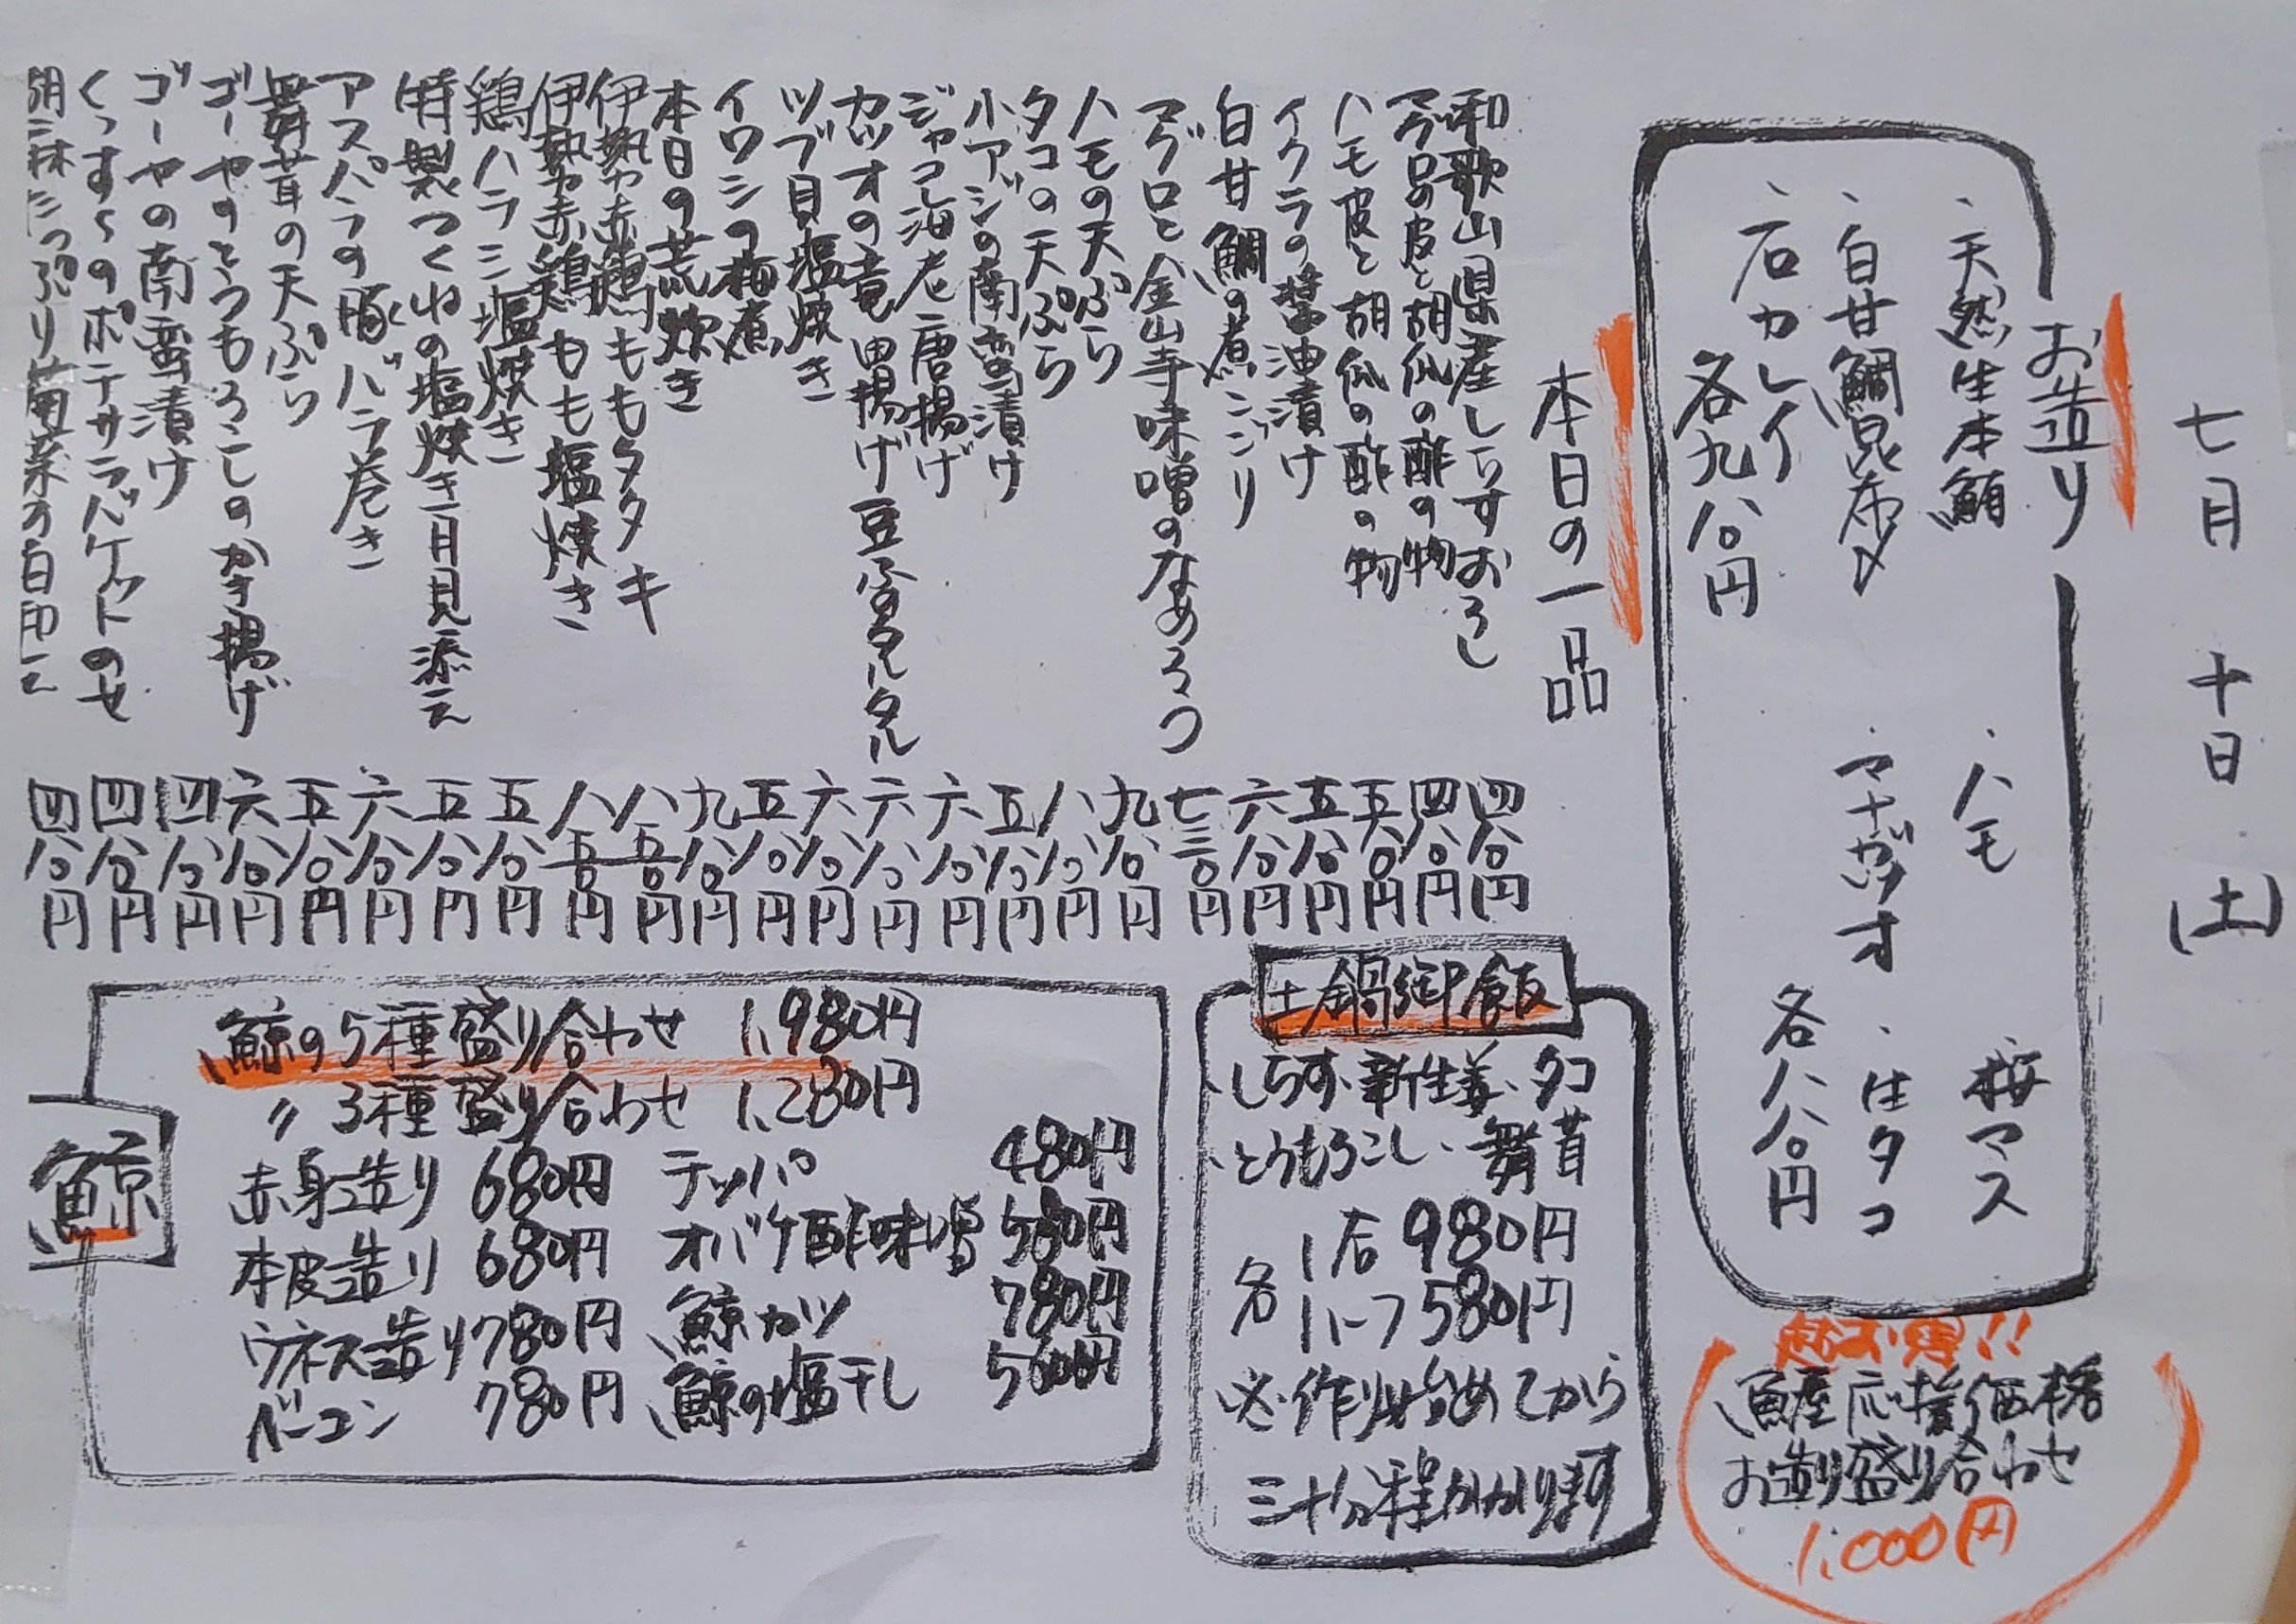 七月 十日 (土)
お造り
・天然生本鮪 ・ハモ 桜マス
・白甘鯛昆布〆 ・マナガツオ ・生タコ
・石カレイ
各九八〇円 各八八〇円
超お得!!
魚屋応援価格
お造り盛り合わせ
1,000円
本日の一品
和歌山県産しらすおろし 四八〇円
マグロの皮と胡瓜の酢の物 四八〇円
ハモ皮と胡瓜の酢の物 五八〇円
イクラの醤油漬け 五八〇円
白甘鯛の煮こごり 六八〇円
マグロと金山寺味噌のなめろう 七三〇円
ハモの天ぷら 九八〇円
タコの天ぷら 八八〇円
小アジの南蛮漬け 五八〇円
ジャコ海老唐揚げ 六八〇円
カツオの竜田揚げ豆ふのタルタル 六八〇円
ツブ貝塩焼き 六八〇円
イワシの梅煮 五八〇円
本日の荒炊き 九八〇円
伊勢赤鶏ももタタキ 八五〇円
伊勢赤鶏もも塩焼き 八五〇円
鶏ハラミ塩焼き 五八〇円
特製つくねの塩焼き月見添え 五八〇円
アスパラの豚バラ巻き 六八〇円
舞茸の天ぷら 五八〇円
ゴーヤのとうもろこしのかき揚げ 六八〇円
ゴーヤの南蛮漬け 四八〇円
くっすぅのポテサラバケットのせ 四八〇円
胡麻たっぷり菊菜の白和え 四八〇円
土鍋御飯
・しらす・新生姜・タコ
・とうもろこし・舞茸
各 1合 980円
ハーフ 580円
※作り始めてから
三十分程かかります
鯨
鯨の5種盛り合わせ 1,980円
〃 3種盛り合わせ 1,280円
赤身造り 680円 テッパ 480円
本皮造り 680円 オバケ酢味噌 580円
ウネス造り 780円 鯨カツ 780円
ベーコン 780円 鯨の塩干し 円